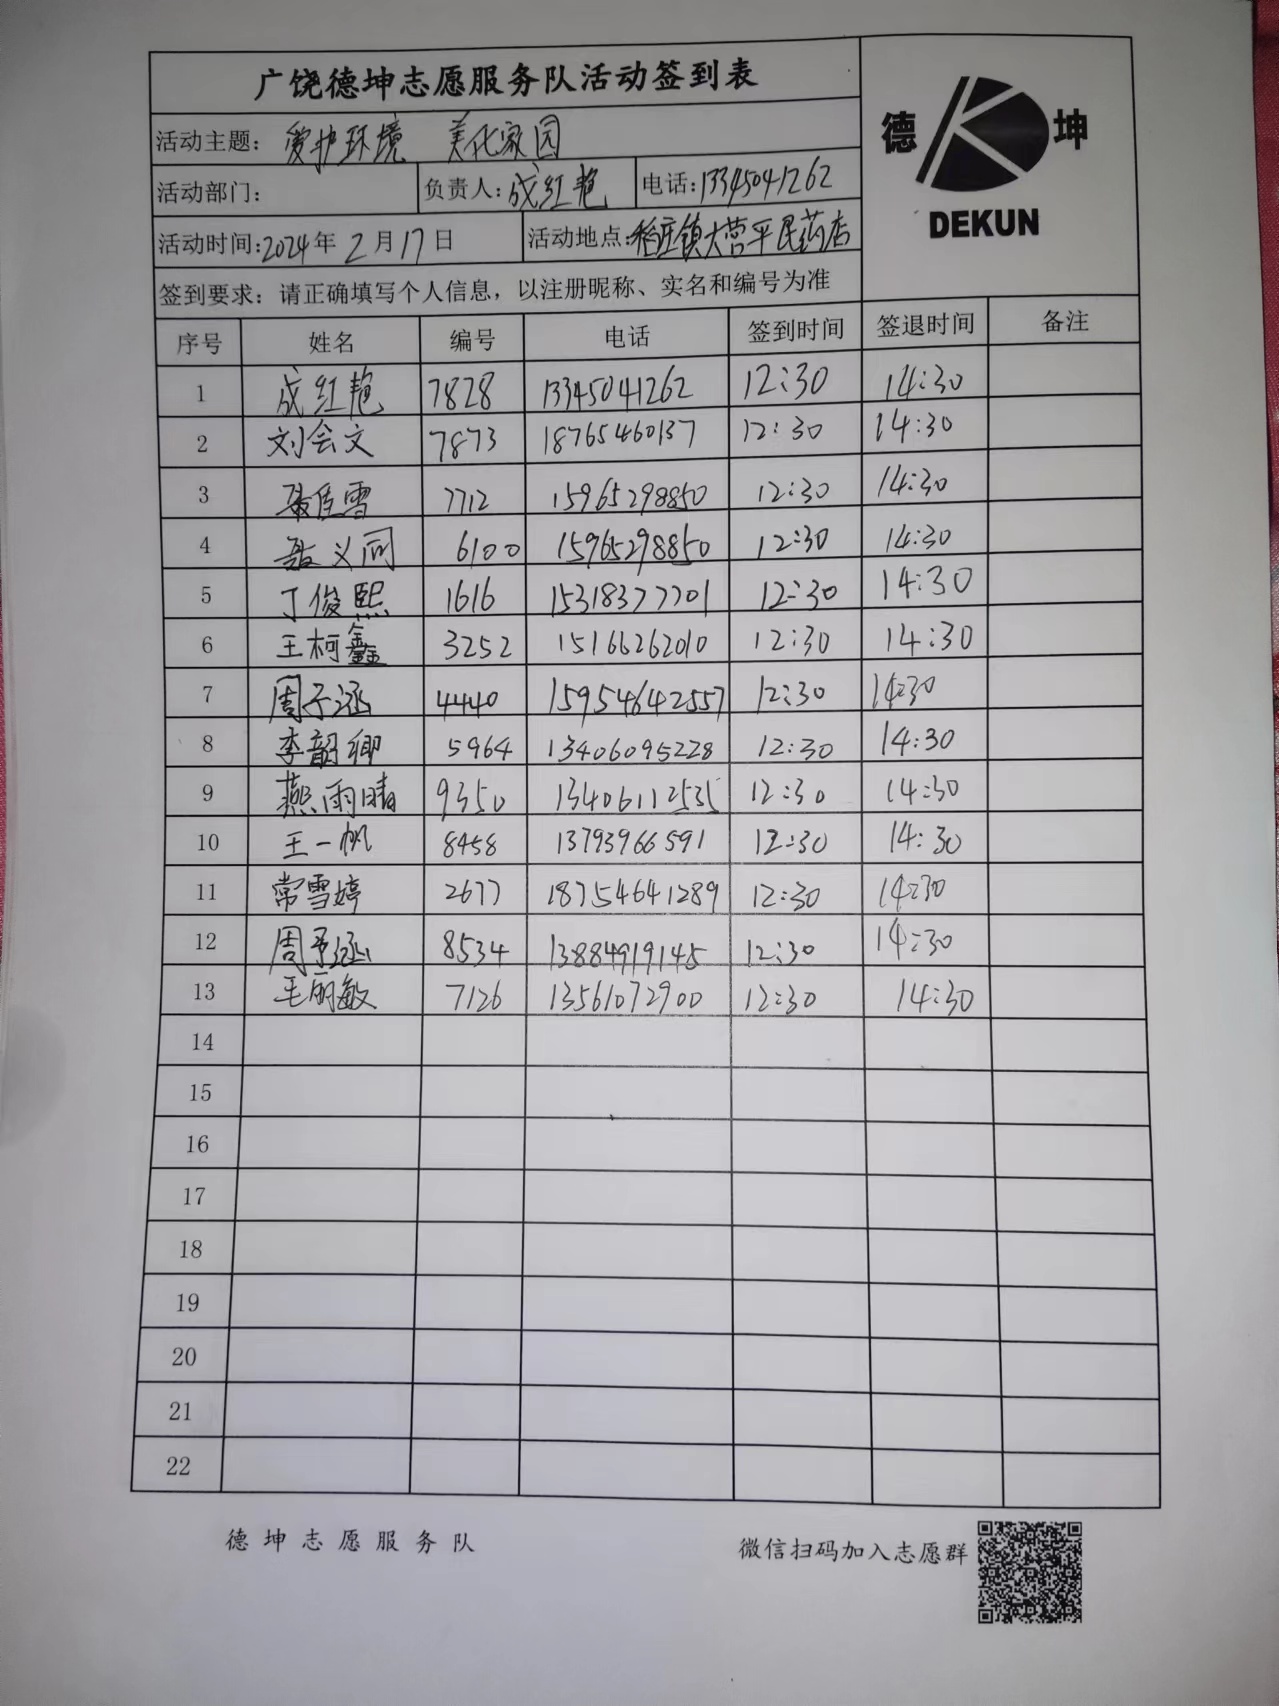 广饶德坤志愿服务队活动签到表
德 坤
DEKUN
活动主题：爱护环境 美化家园
活动部门： 负责人：成红艳 电话：13345041262
活动时间：2024年2月17日 活动地点：稻庄镇大营平民药店
签到要求：请正确填写个人信息，以注册昵称、实名和编号为准
序号 姓名 编号 电话 签到时间 签退时间 备注
1 成红艳 7828 13345041262 12:30 14:30
2 刘会文 7873 18765460137 12:30 14:30
3 聂佳雪 7712 15965298850 12:30 14:30
4 聂义同 6100 15965298850 12:30 14:30
5 丁俊熙 1616 15318377701 12:30 14:30
6 王柯鑫 3252 15166262010 12:30 14:30
7 周子涵 4440 15954642557 12:30 14:30
8 李韶卿 5964 13406095228 12:30 14:30
9 燕雨晴 9350 13406112535 12:30 14:30
10 王一帆 8458 13793966591 12:30 14:30
11 常雪婷 2677 18754641289 12:30 14:30
12 周予涵 8534 13884919145 12:30 14:30
13 毛丽敏 7126 13561072900 12:30 14:30
14
15
16
17
18
19
20
21
22
德坤志愿服务队 微信扫码加入志愿群